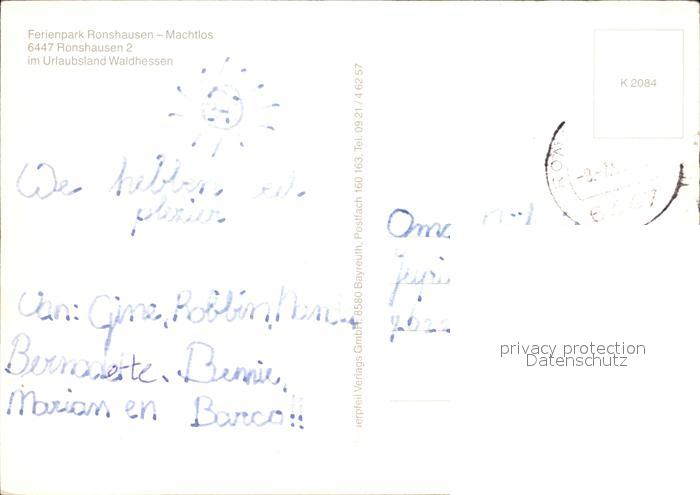 Ferienpark Ronshausen – Machtlos
6447 Ronshausen 2
im Urlaubsland Waldhessen
We hebben
plezier
Van: Gine, Robbin,
Bernadette, Bennie,
Marian en Barco!!
erpfeil Verlags GmbH, 8580 Bayreuth, Postfach 160 163, Tel. 09 21 / 4 62 57
K 2084
Oma
privacy protection
Datenschutz